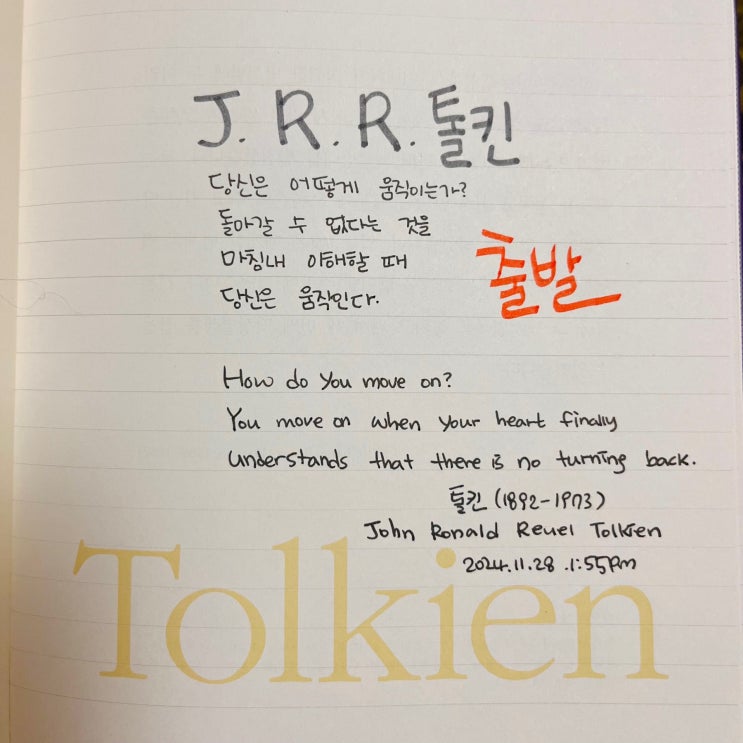 J. R. R. 톨킨
당신은 어떻게 움직이는가?
돌아갈 수 없다는 것을
마침내 이해할 때
당신은 움직인다.
출발
How do you move on?
You move on when your heart finally
understands that there is no turning back.
톨킨 (1892-1973)
John Ronald Reuel Tolkien
2024.11.28 .1:55pm
Tolkien